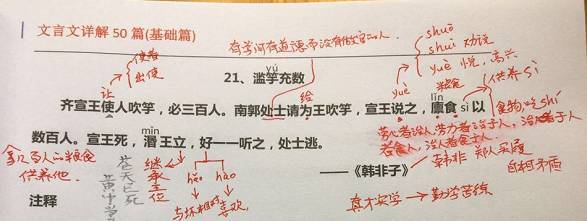 文言文详解50篇(基础篇)
有学问有道德而没有做官的人.
使者
出使
让
shuō
shuì 劝说
yuè 悦, 高兴
yú
21、滥竽充数
给
yuè
粮食
供养 sì
食物,吃 shí
齐宣王使人吹竽，必三百人。南郭处士请为王吹竽，宣王说之，廪食 sì 以
lǐn
劳心者治人,劳力者治于人,治于人者
食人,治人者食于人
数百人。宣王死，湣王立，好一一听之，处士逃。
mǐn
拿几百人的粮食
供养他.
继承王位
hǎo hào
与坏相对 喜欢
苍天已死
——《韩非子》
韩非 郑人买履
自相矛盾
真才实学→勤学苦练
注释